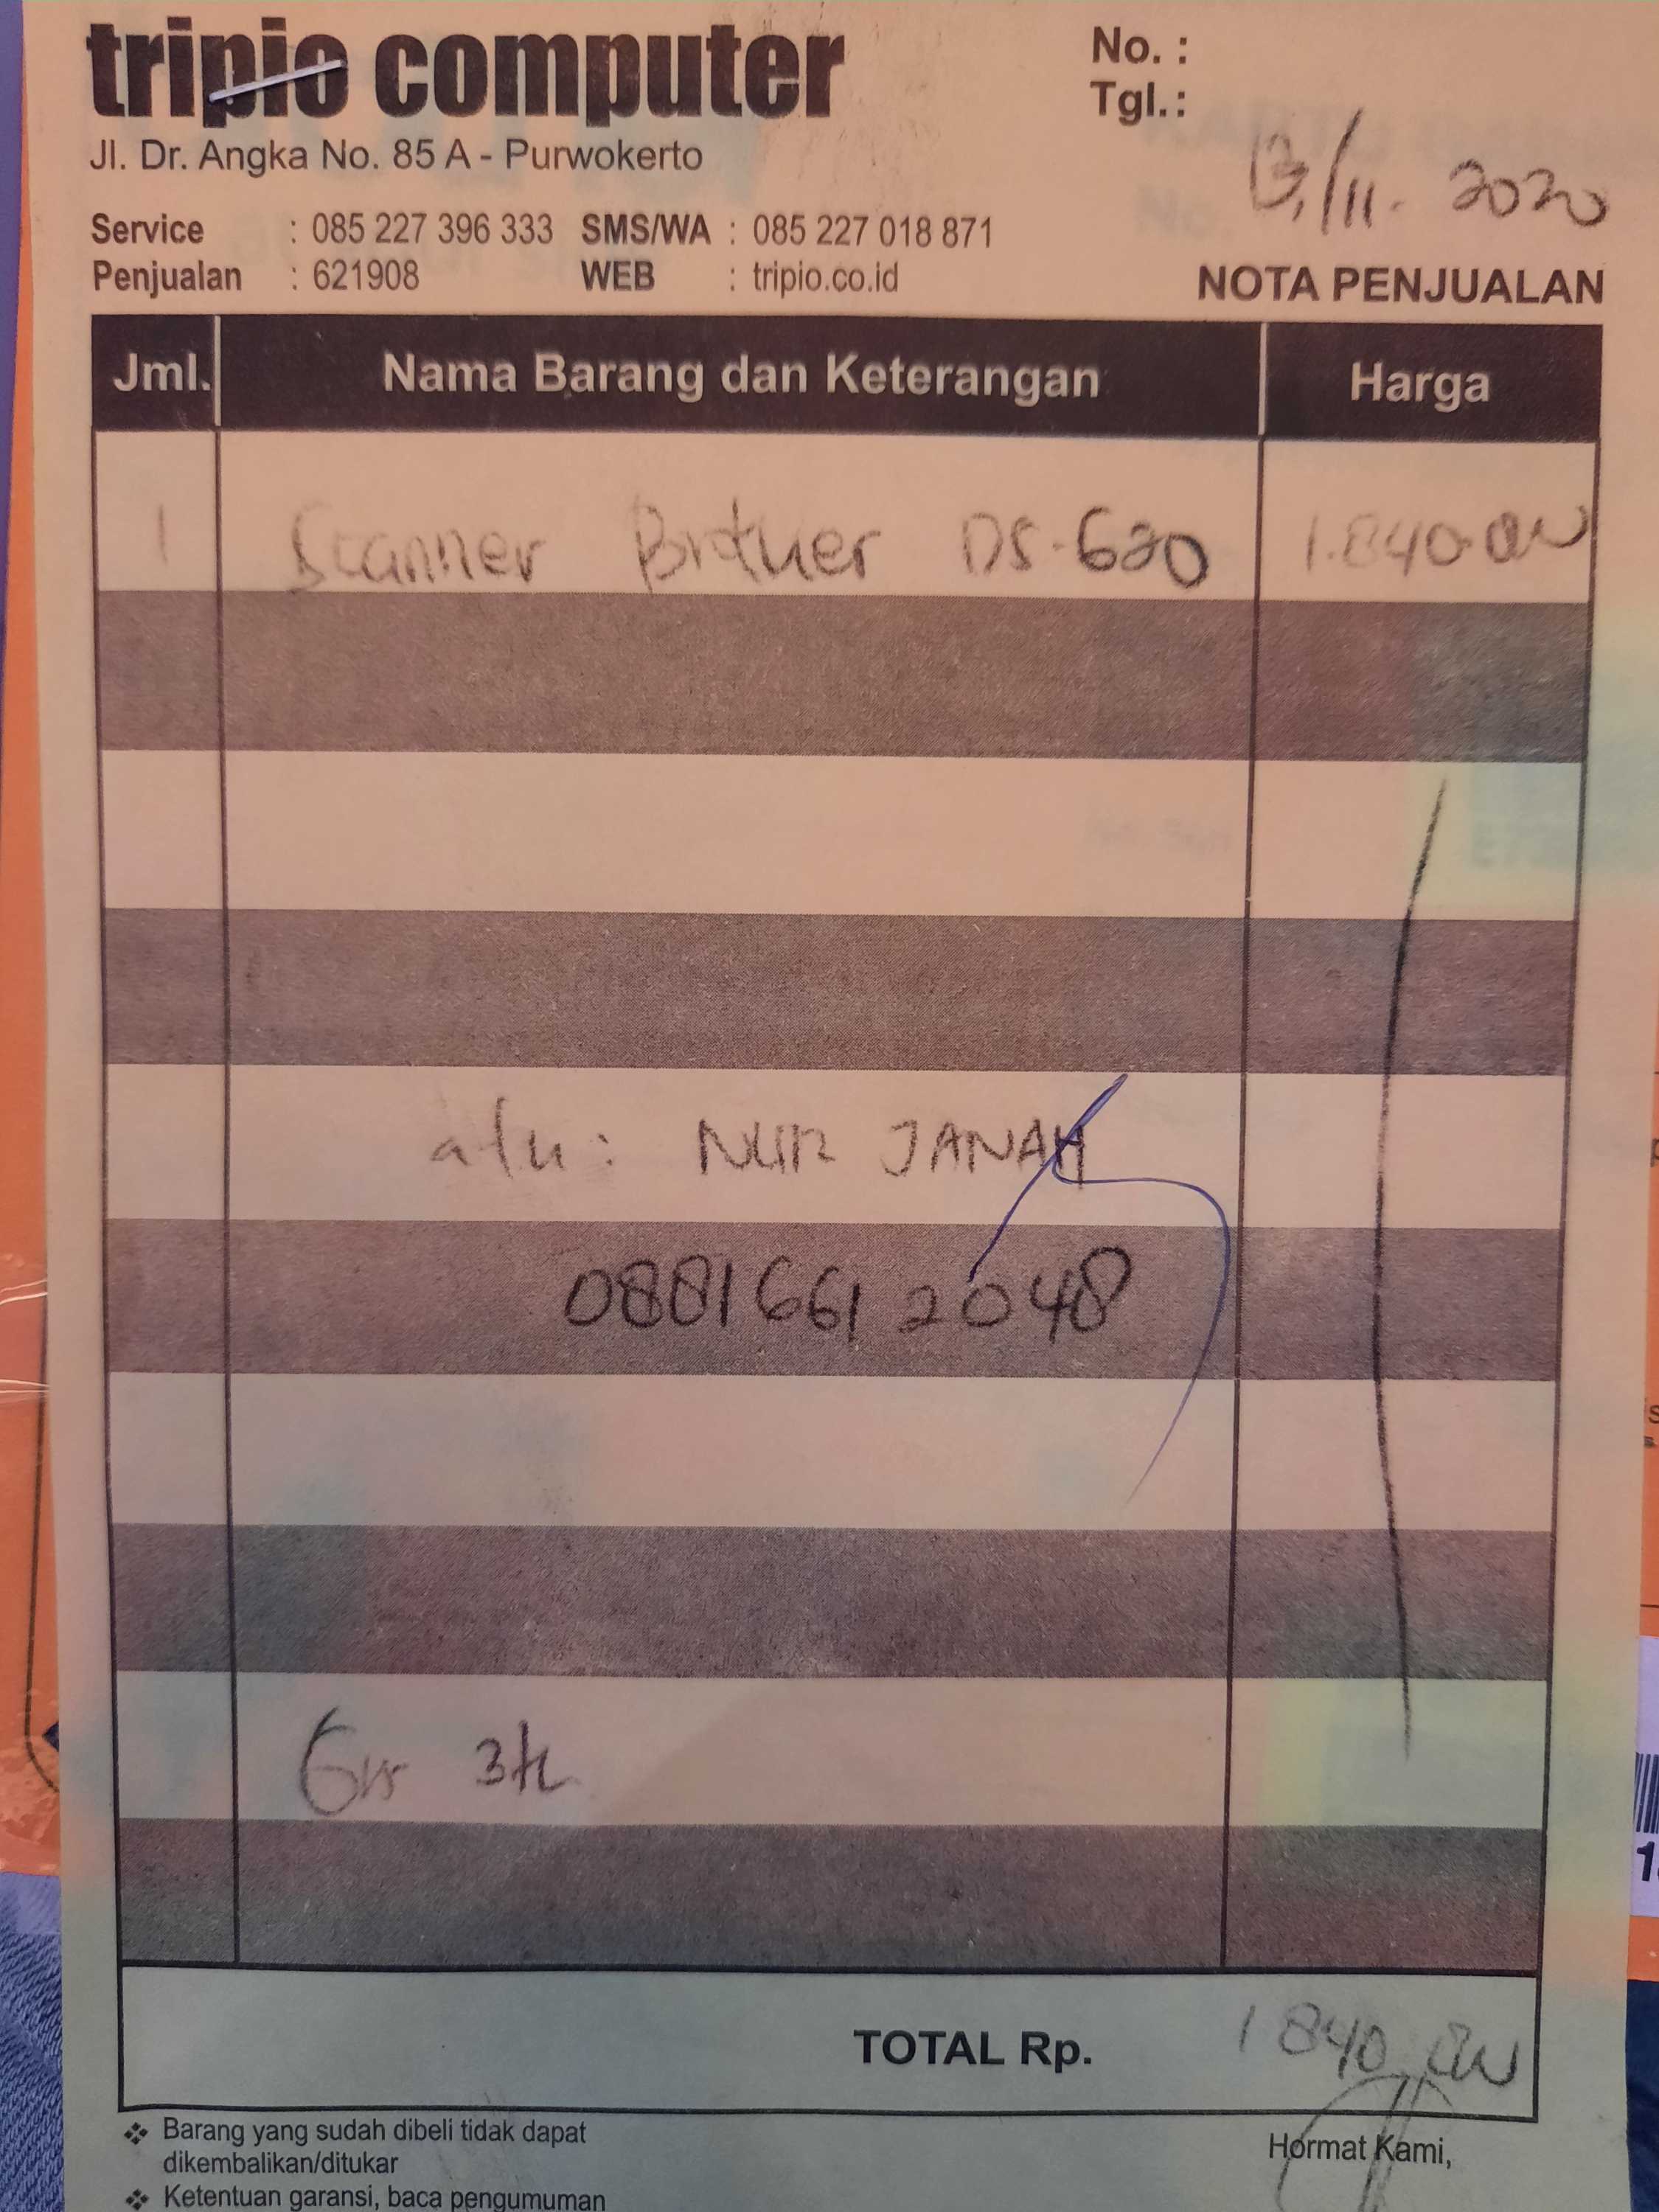 tripio computer
No. :
Tgl. :
Jl. Dr. Angka No. 85 A - Purwokerto
13/11. 2020
Service : 085 227 396 333 SMS/WA : 085 227 018 871
Penjualan : 621908 WEB : tripio.co.id
NOTA PENJUALAN
Jml. Nama Barang dan Keterangan Harga
1 Scanner Brother DS-620 1.840.000
a/n : NUR JANAH
08816612048
Grs 3th
TOTAL Rp. 1840.000
❖ Barang yang sudah dibeli tidak dapat
dikembalikan/ditukar
Hormat Kami,
❖ Ketentuan garansi, baca pengumuman